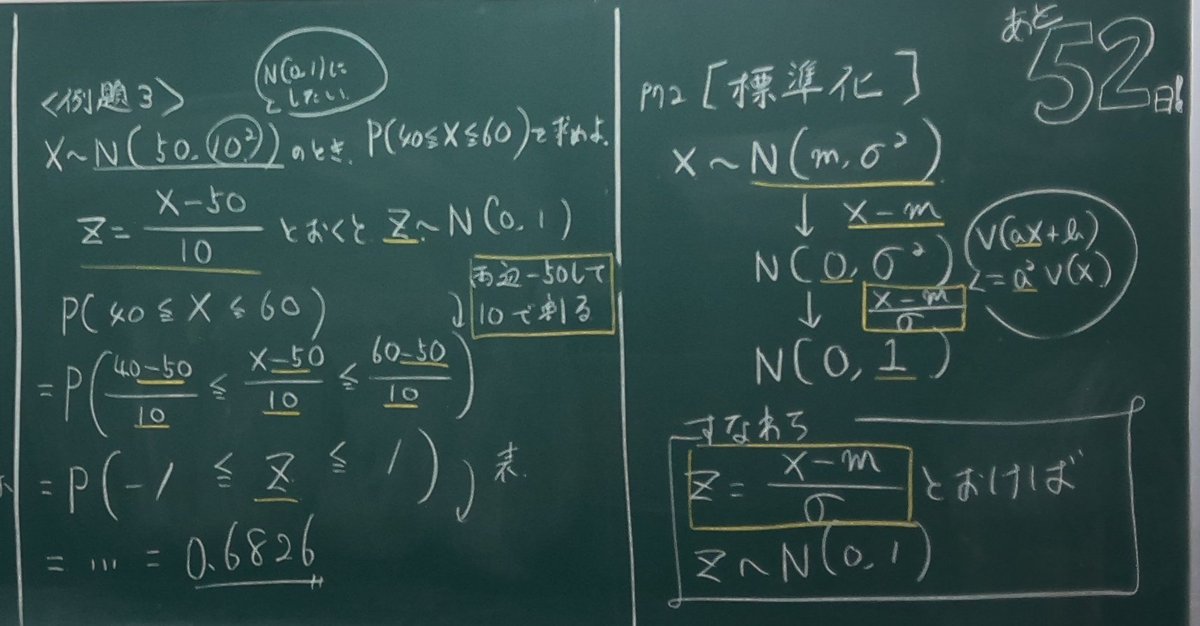 <例題3>
N(0,1)に
としたい
X~N(50,10²)のとき、P(40≦X≦60)を求めよ。
Z=(X-50)/10 とおくと Z~N(0,1)
P(40≦X≦60)
両辺-50して
10で割る
=P((40-50)/10≦(X-50)/10≦(60-50)/10)
=P(-1≦Z≦1) 表
=…=0.6826
あと52日!
[標準化]
X~N(m,σ²)
↓ X-m
N(0,σ²)
↓ (X-m)/σ
N(0,1)
V(aX+b)
=a²V(X)
すなわち
Z=(X-m)/σ とおけば
Z~N(0,1)